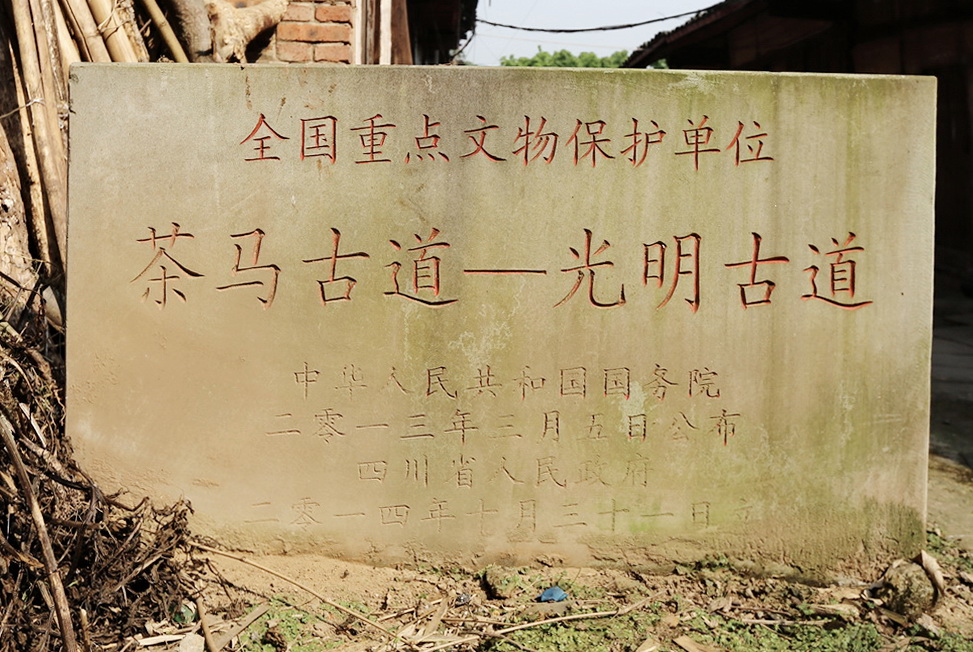 全国重点文物保护单位
茶马古道—光明古道
中华人民共和国国务院
二零一三年三月五日公布
四川省人民政府
二零一四年十月三十一日立